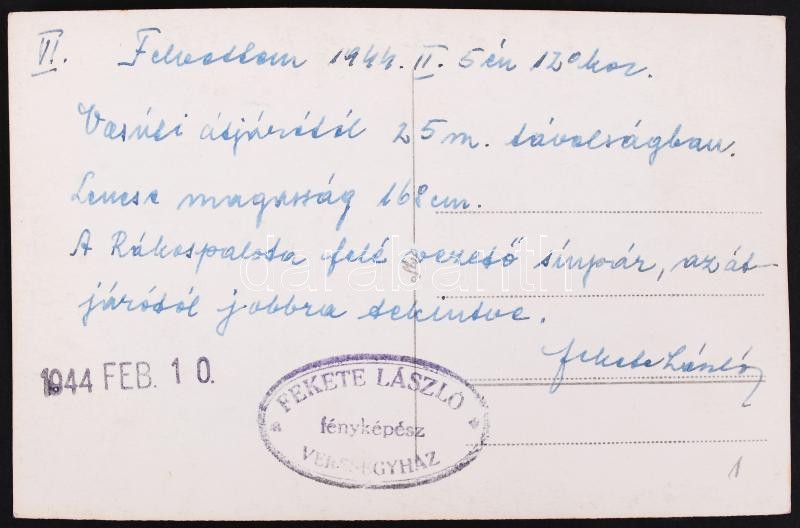 VI. Felvettem 1944. II. 5 én 12º kor.
Vasúti átjárótól 25 m. távolságban.
Lencse magasság 168 cm.
A Rákospalota felé vezető sínpár, az át-
járótól jobbra tekintve.
Fekete László
1944 FEB. 10.
FEKETE LÁSZLÓ
fényképész
VERESEGYHÁZ
1
darabanth